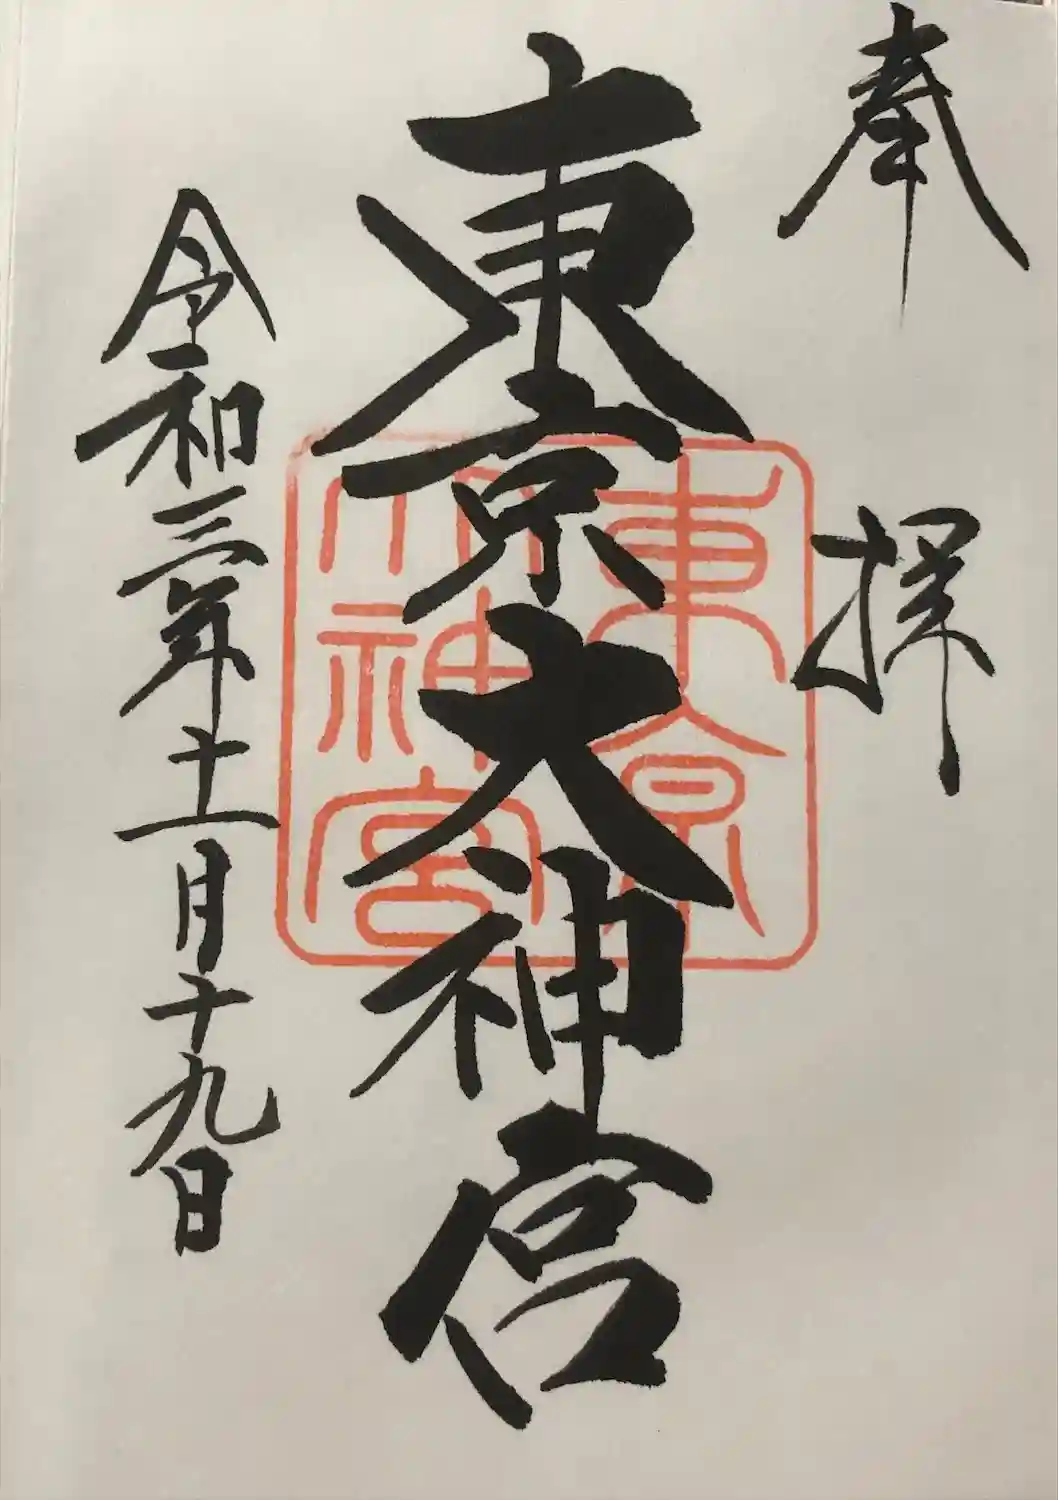 奉拝
東京大神宮
令和三年十一月十九日
東京
大神宮